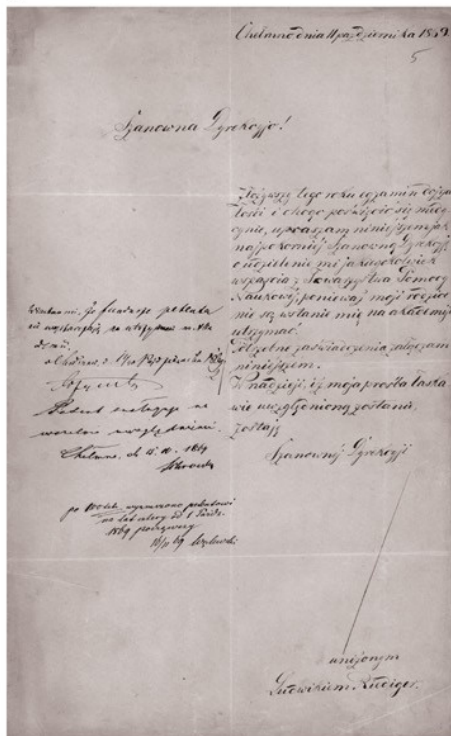 Chełmno dnia 11 października 1869.
5
Szanowna Dyrekcyo!
Złożywszy tego roku egzamin dojrza
łości i chcąc poświęcić się medy
cynie, upraszam niniejszem jak
najpokorniej Szanowną Dyrekcyę
o udzielenie mi jakiegokolwiek
wsparcia z Towarzystwa Pomocy
Naukowej, ponieważ moji rodzice
nie są wstanie mię na akademji
utrzymać.
Potrzebne zaświadczenia załączam
niniejszem.
W nadzieji, iż moja prośba łaska
wie uwzględnioną zostanie,
zostaję
Szanownej Dyrekcyji
uniżonym
Ludwikiem Rüdiger.
że fundusze petenta
nie na utrzymanie na Aka
demii,
Petent zasługuje na
uwzględnienie.
Chełmno, d. 10. 1869
po wyznaczono petentowi
na lat cztery od 1 Paźdz.
1869 począwszy